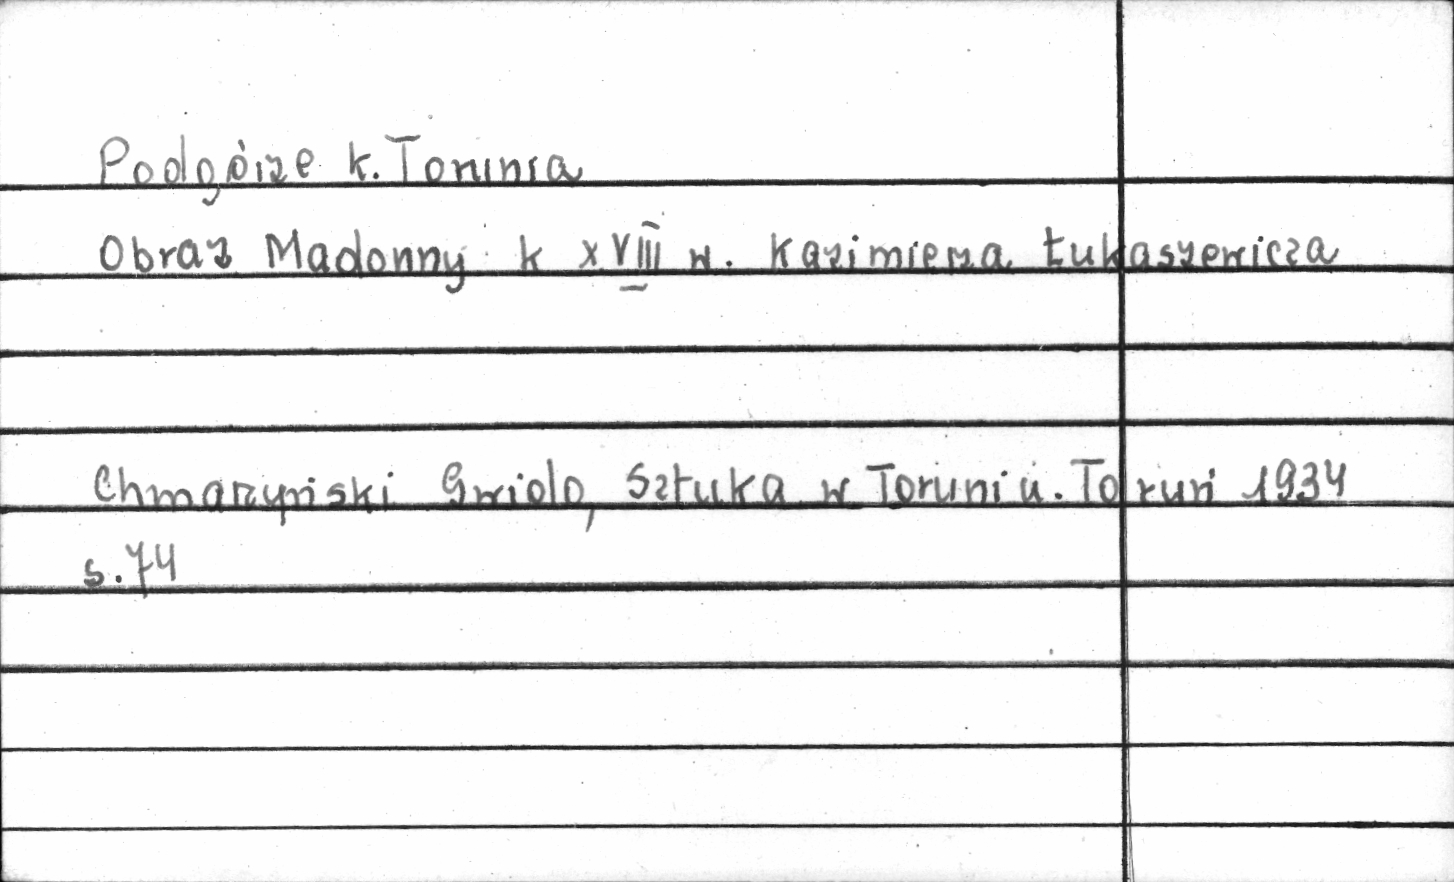 Podgórze k. Torunia
Obraz Madonny k XVIII w. Kazimierza Łukaszewicza
Chmarzyński Gwido, Sztuka w Toruniu. Toruń 1934
s. 74